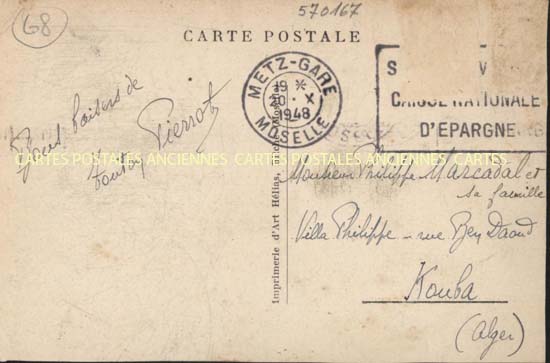 68
570167
CARTE POSTALE
METZ-GARE
19 *
20 · X
1948
MOSELLE
S V
CAISSE NATIONALE
D'EPARGNE
baisers de
Pierrot
CARTES POSTALES ANCIENNES CARTES POSTALES ANCIENNES CARTES POSTALES ANCIENNES
Monsieur Philippe Marcadal et
sa famille
Villa Philippe – rue Ben Daoud
Kouba
(Alger)
Imprimerie d'Art Hélias,